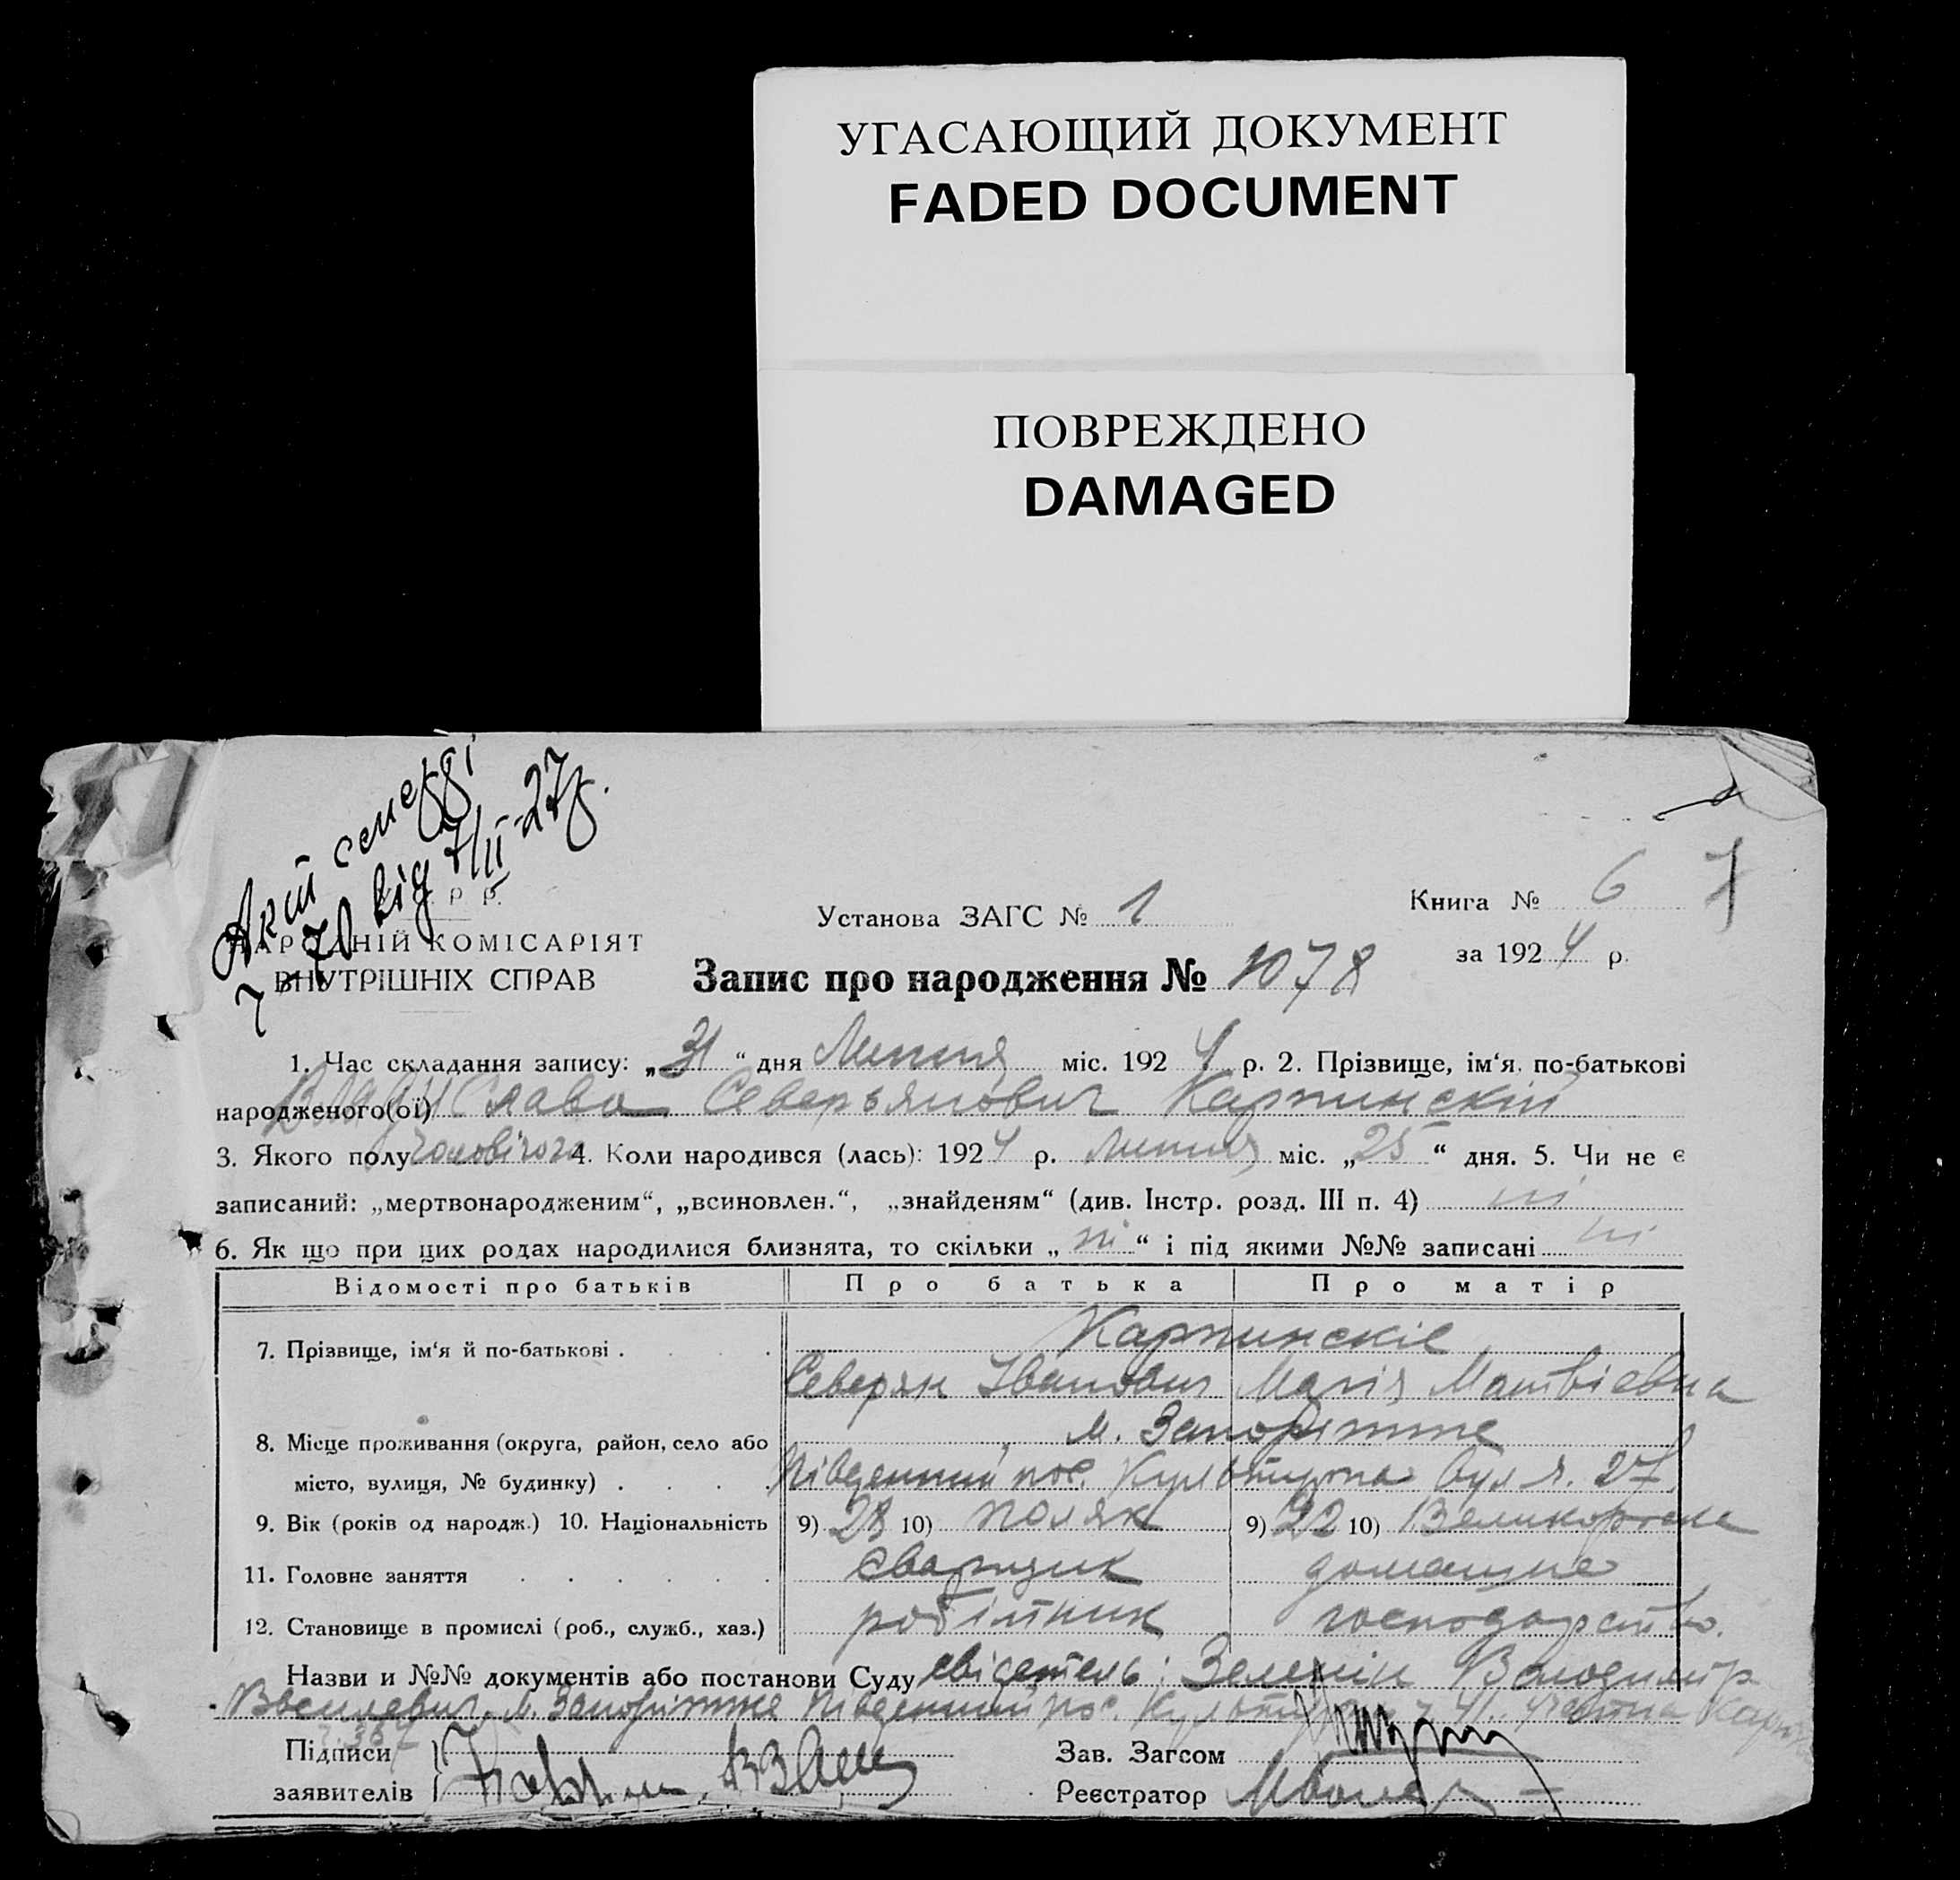 УГАСАЮЩИЙ ДОКУМЕНТ
FADED DOCUMENT
ПОВРЕЖДЕНО
DAMAGED
Акт
70 від 7/II-27р.
Р Р.
НАРОДНІЙ КОМІСАРІЯТ
ВНУТРІШНІХ СПРАВ
Установа ЗАГС № 1
Книга № 6 7
за 1924 р.
Запис про народження № 1078
1. Час складання запису: „31“ дня Липня міс. 1924 р. 2. Прізвище, ім‘я, по-батькові
народженого(ої) Северьянович Карпинскій
3. Якого полу чоловічого 4. Коли народився (лась): 1924 р. Липня міс. „25“ дня. 5. Чи не є
записаний: „мертвонародженим“, „всиновлен.“, „знайденям“ (див. Інстр. розд. III п. 4) ні
6. Як що при цих родах народилися близнята, то скільки „ні“ і під якими №№ записані ні
Відомості про батьків Про батька Про матір
7. Прізвище, ім‘я й по-батькові . . . . Карпинскіе
Северян Іванович Марія Матвіевна
8. Місце проживання (округа, район, село або м. Запоріжже
місто, вулиця, № будинку) . . . . Південний пос. Культурна вул ч. 27
9. Вік (років од народж.) 10. Національність 9) 28 10) поляк 9) 22 10) Великороска
11. Головне заняття . . . . . . сварщик домашне
12. Становище в промислі (роб., служб., хаз.) робітник господарство.
Назви и №№ документів або постанови Суду свідетель: Зеленін Володимір
Васильевич, м. Запоріжже Південний пос. ч. 41.
Підписи Зав. Загсом
заявителів Реєстратор